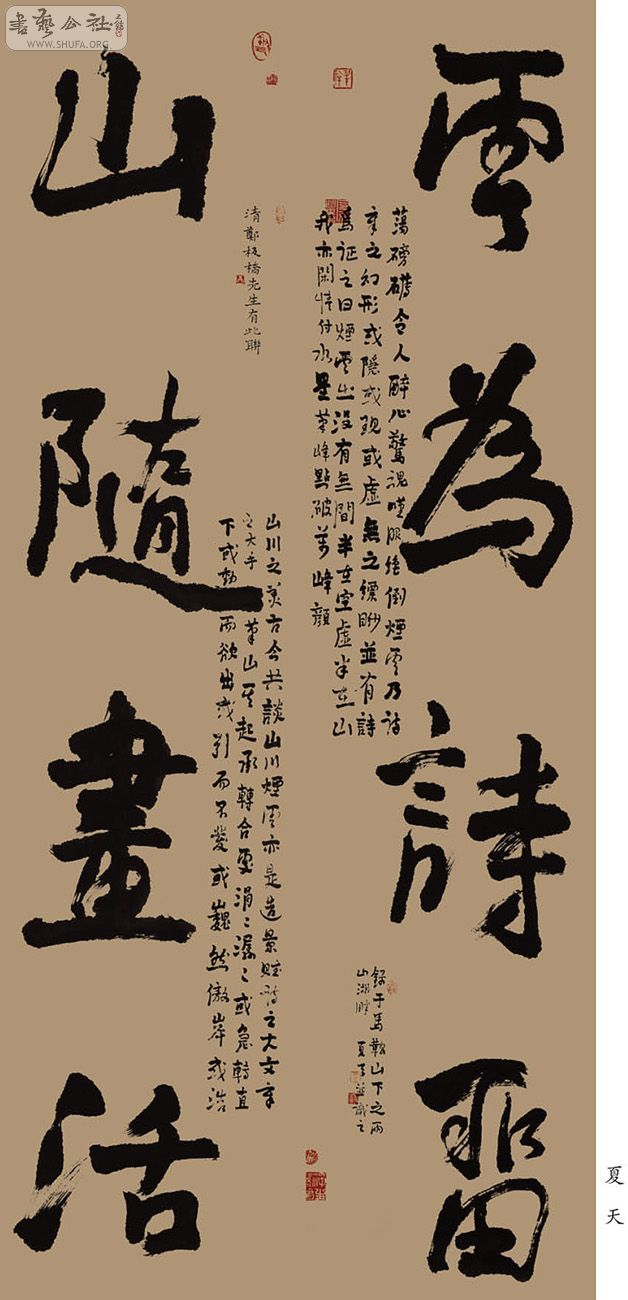 雲為詩留
山隨畫活
清鄭板橋先生有此聯
蕩磅礴令人醉心驚魂嘆服絕倒煙雲乃詩
章之幻形或隱或現或虛無之縹眇並有詩
為証之曰煙雲出沒有無間半在空虛半在山
我亦閑情付水墨峰點破萬峰顏
山川之美古今共談山川煙雲亦是造景賦詩之大文章
之大手筆山其起承轉合更涓涓潺潺或急轉直
下或勃而欲出或引而不發或巍然傲岸或浩
錄于馬鞍山下之雨
山湖畔夏天並識之
書藝公社
WWW.SHUFA.ORG
夏天